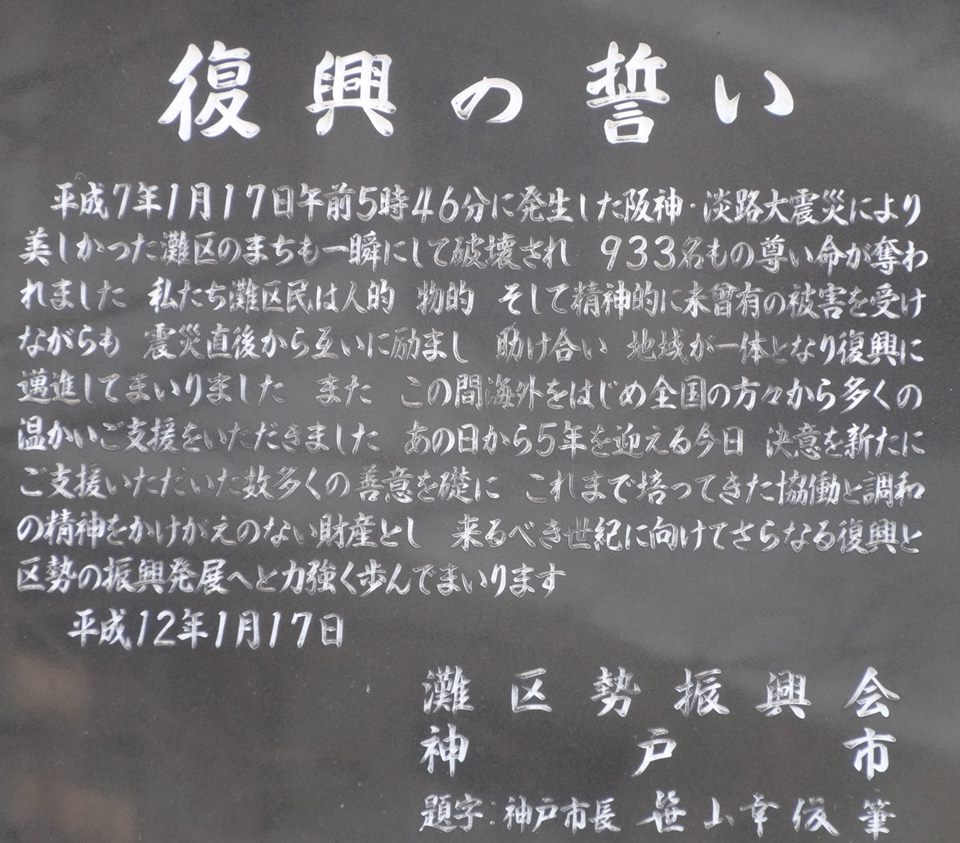 復興の誓い
平成7年1月17日午前5時46分に発生した阪神・淡路大震災により
美しかった灘区のまちも一瞬にして破壊され 933名もの尊い命が奪わ
れました 私たち灘区民は人的 物的 そして精神的に未曾有の被害を受け
ながらも 震災直後から互いに励まし 助け合い 地域が一体となり復興に
邁進してまいりました また この間海外をはじめ全国の方々から多くの
温かいご支援をいただきました あの日から5年を迎える今日 決意を新たに
ご支援いただいた数多くの善意を礎に これまで培ってきた協働と調和
の精神をかけがえのない財産とし 来るべき世紀に向けてさらなる復興と
区勢の振興発展へと力強く歩んでまいります
平成12年1月17日
灘区勢振興会
神戸市
題字:神戸市長 笹山幸俊 筆